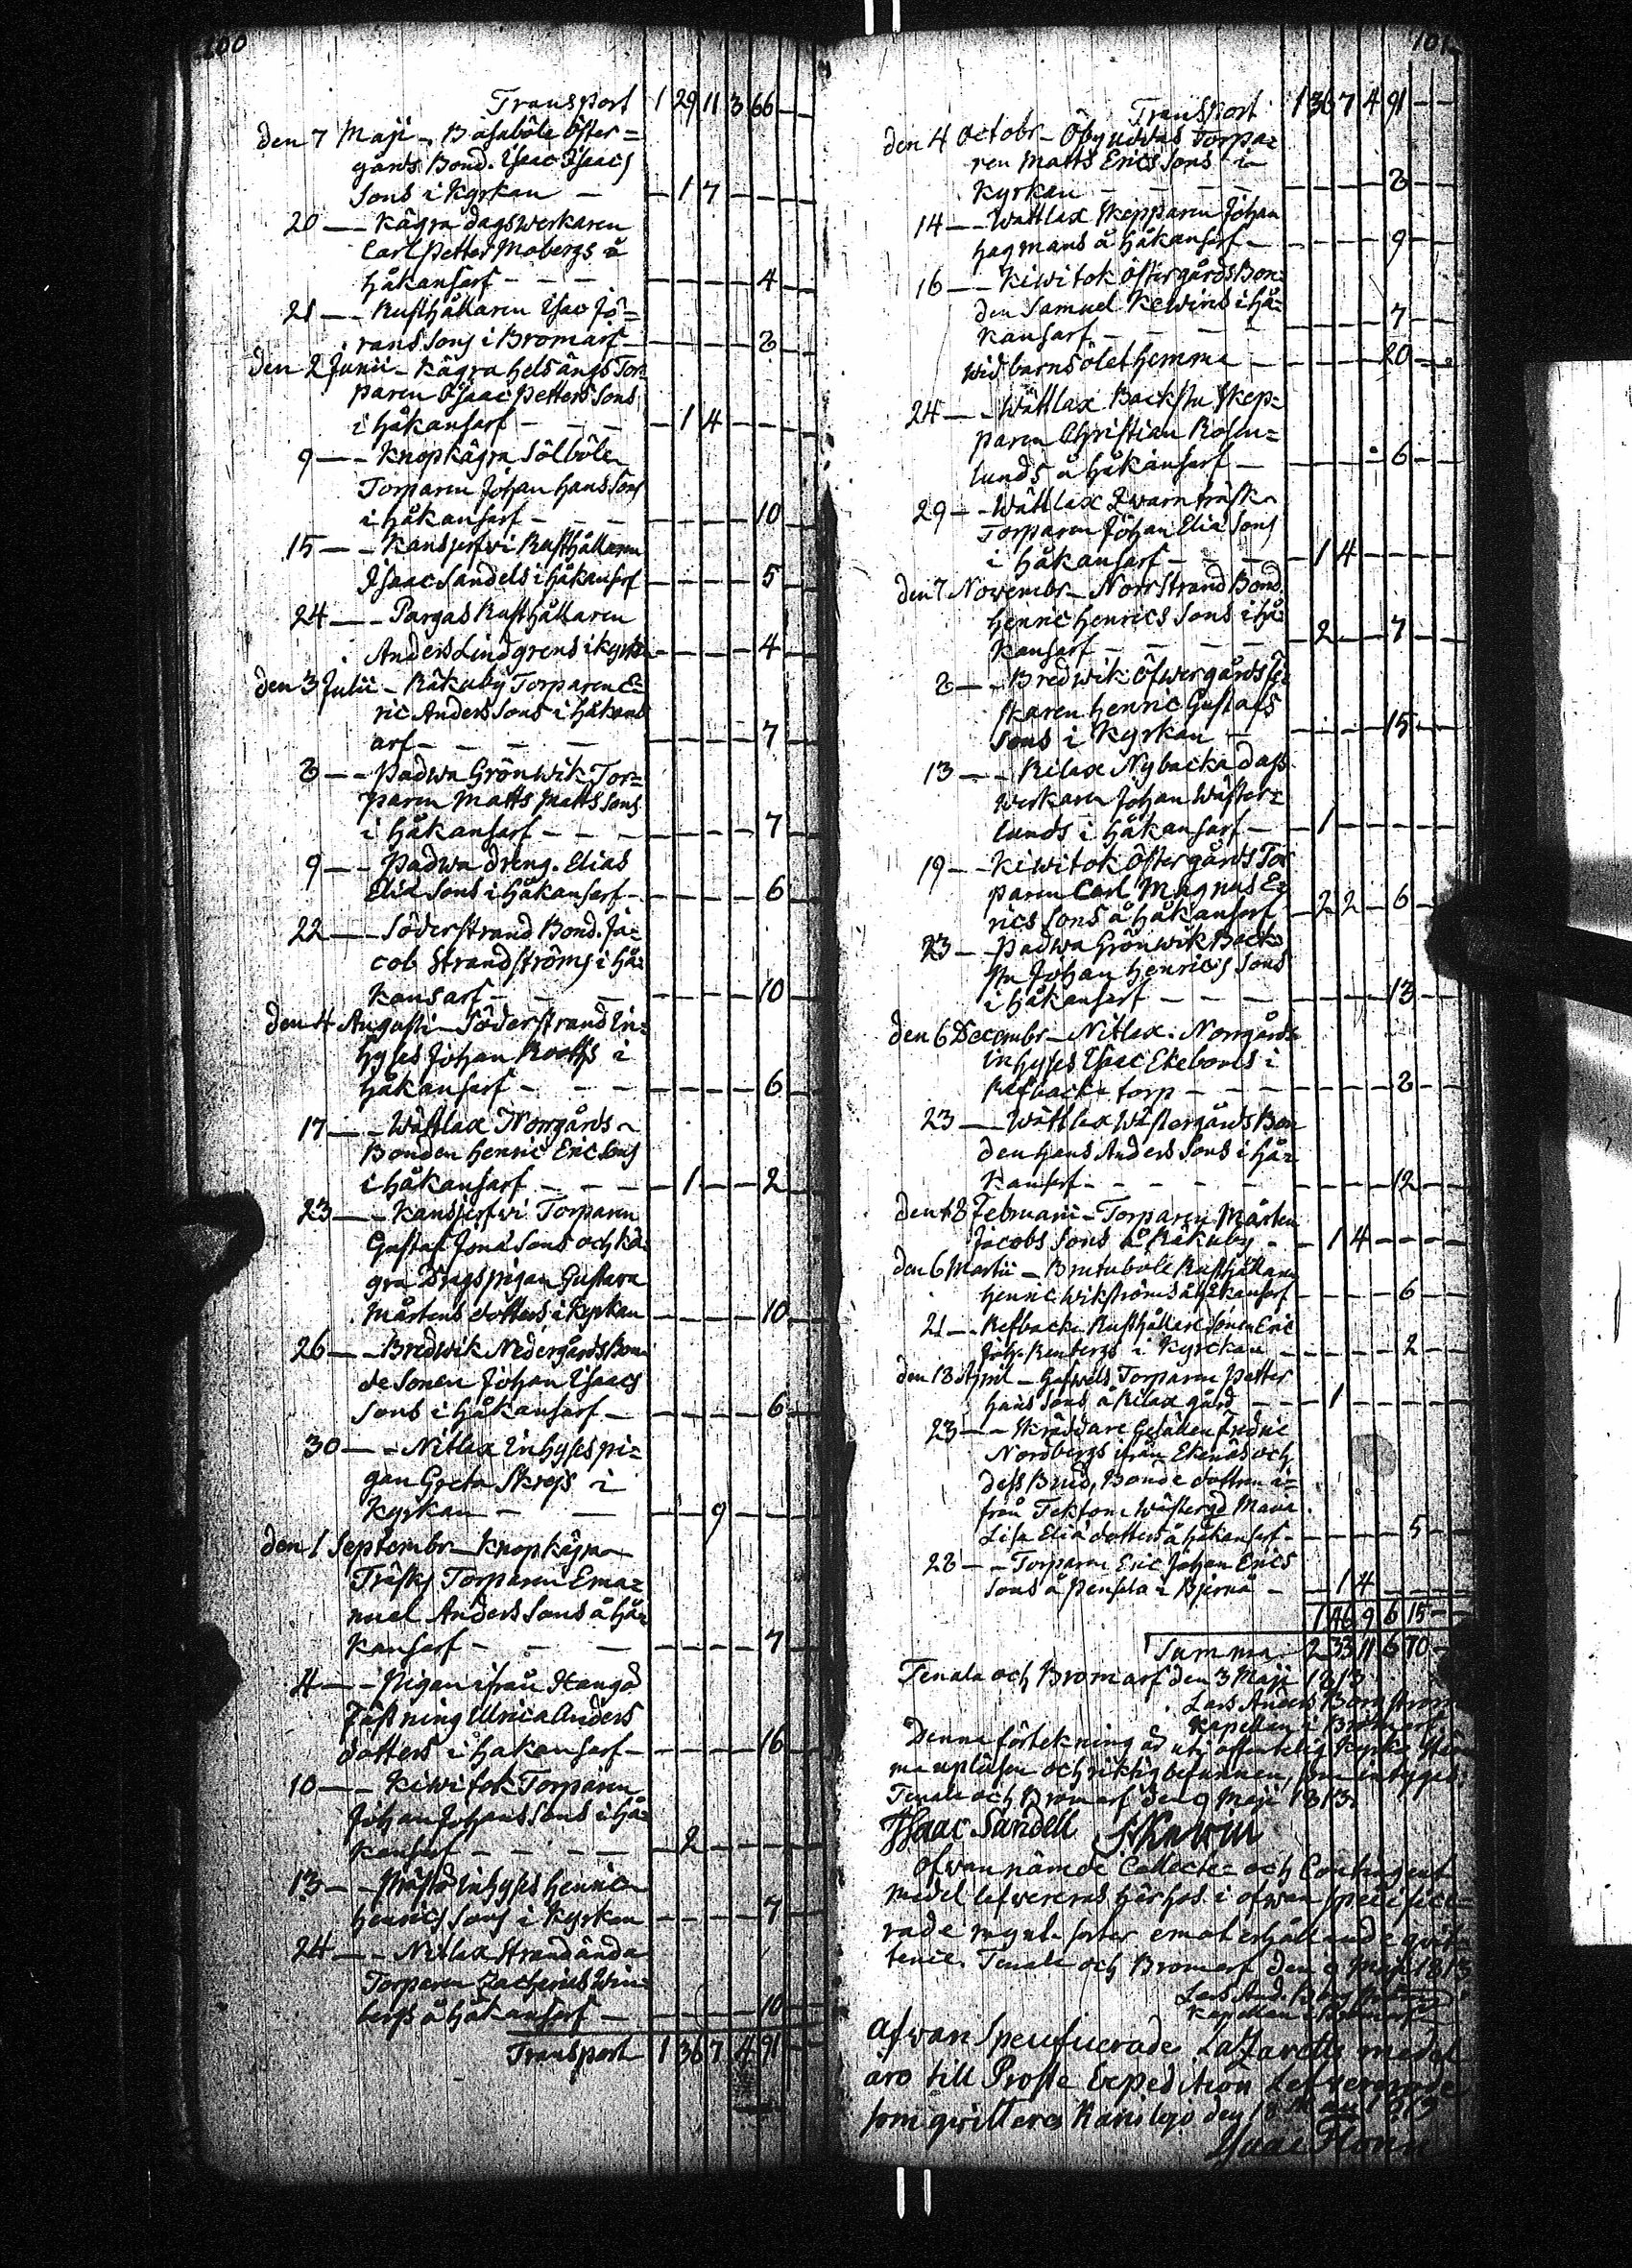 100
Transport 1 29 11 3 66 — —
den 7 Maji — Båsaböle Öster=
gårds Bond. Isaac Isaacs
Sons i Kyrkan — — 1 7 — — — —
20 — — Kågra dagswerkaren
Carl Petter Mobergs å
håkansarf — — — — — — — 4 — —
21 — — Rusthållaren Isac Jö=
rans Sons i Bromarf — — — — — 8 — —
den 2 Junii — Kågra helsängs Tor=
paren Isaac Petters Sons
i håkansarf — — — — 1 4 — — — —
9 — — Knopkågra Sölböle
Torparen Johan Hans Sons
i håkansarf — — — — — — — 10 — —
15 — — Kansjerfwi Rusthållaren
Isaac Sandels i håkansarf — — — — 5 — —
24 — — Pargas Rusthållaren
Anders Lindgrens i kyrk — — — — 4 — —
den 3 Julii — Råkuby Torparen E=
ric Anders Sons i håkans
arf — — — — — — — — 7 — —
8 — — Padwa Grönwik Tor=
paren Matts Matts Sons
i håkansarf — — — — — — — 7 — —
9 — — Padwa dreng. Elias
Elia Sons i håkansarf — — — — — 6 — —
22 — — Söderstrand Bond. Ja=
cob Strandströms i hå=
kansarf — — — — — — — 10 — —
den 4 Augusti — Söderstrand In=
hyses Johan Rooths i
håkansarf — — — — — — — 6 — —
17 — — Wättlax Norrgårds
Bonden Henric Erics Sons
i håkansarf — — — — 1 — — 2 — —
23 — — Kansjerfwi Torparen
Gustaf Jona Sons och Kå=
gra Dagspigan Gustava
Mårtens dotters i Kyrkan — — — — 10 — —
26 — — Bredwik Nedergårds Bon=
de Sonen Johan Isaacs
Sons i håkansarf — — — — — 6 — —
30 — — Nitlax Inhyses pi=
gan Greta Skogs i
Kyrkan — — — — 9 — — — —
den 1 Septembr — Knopkågra
Träsks Torparen Ema=
nuel Anders Sons å hå=
kansarf — — — — — — — 7 — —
4 — — Pigan ifrån Hangö
Fästning Ulrica Anders
dotters i håkansarf — — — — — 16 — —
10 — — Kiwitok Torparen
Johan Johans Sons i hå=
kansarf — — — — — 2 — — — — —
13 — — Inhyses Henric
Henrics Sons i Kyrkan — — — — 7 — —
24 — — Nitlax Strandända
Torparen Zacharias Win=
bergs å håkansarf — — — — — 10 — —
Transport 1 36 7 4 91 — —
101
Transport 1 36 7 4 91 — —
den 4 Octobr — Öby uddas Torpa=
ren Matts Erics Sons i
Kyrkan — — — — — — — 8 — —
14 — — Wättlax Skepparen Johan
Hagmans å håkansarf — — — — — 9 — —
16 — — Kiwitok Östergårds Bon=
den Samuel Kewins i hå=
kansarf — — — — — — — 7 — —
wid barnsölet hemma — — — — — 20 — —
24 — — Wättlax Backstu Skep=
paren Christian Rosen=
lunds å håkansarf — — — — — 6 — —
29 — — Wättlax Qwarnträsk
Torparen Johan Elia Sons
i håkansarf — — — 1 4 — — — —
den 7 Novembr — Norrstrand Bond.
Henric Henrics Sons i hå=
kansarf — — — — 2 — — 7 — —
8 — — Bredwik Öfwergårds Fi=
skaren Henric Gustafs
Sons i Kyrkan — — — — — 15 — —
13 — — Rilax Nybacka dags
werkaren Johan Wäster=
lunds i håkansarf — — 1 — — — — —
19 — — Kiwitok Östergårds Tor=
paren Carl Magnus E=
rics Sons å håkansarf — 2 2 — 6 — —
23 — — Padwa Grönwik Back=
stu Johan Henrics Sons
i håkansarf — — — — — — — 13 — —
den 6 Decembr — Nitlax Norrgårds
inhyses Isaac Ekeboms i
Refbacka torp — — — — — — — 8 — —
23 — — Wättlax Wästergårds Bon=
den Hans Anders Sons i hå=
kansarf — — — — — — — 12 — —
den 18 Februarii — Torparen Mårten
Jacobs Sons å Råkuby — — 1 4 — — — —
den 6 Martii — Brutuböle Rusthållaren
Henric Wikströms å håkansarf — — — — 6 — —
21 — — Refbacka Rusthållare Sonen Eric
Joh. Renbergs i Kyrckan — — — — — 2 — —
den 18 April — Torparen Petter
Hans Sons å Rilax gård — — 1 — — — — —
23 — — Skräddare Gesällen Fredric
Nordbergs ifrån Ekenäs och
dess Brud, Bonde dottren i=
från Tektom Wästergd Maria
Lisa Elia dotters å håkansarf — — — — 5 — —
28 — — Torparen Eric Johan Erics
Sons å Pensala i Bjernå — — 1 4 — — — —
1 46 9 6 15 — —
Summa 2 33 11 6 70 —
Tenala och Bromarf den 3 Maji 1813
Lars Anders Borgström
Kapellan i Bromarf.
Denna förtekning är uti offentelig Kyrko Stäm=
ma upläsen och riktig befunnen, som intygas.
Tenala och Bromarf den 9 Maji 1813.
Isaac Sandell
Ofwannämde Collecte- och Contingent
medel lefvereras härhos i ofwan specifice
rade mynt-sorter emot erhållande qvit
tence. Tenala och Bromarf den 9 Maji 1813
Lars And. Borgström
Kapellan i Bromarf
Ofwan Specificerade Lazaretts medel
äro till Proste Expedition Lefvererade
som qwitteras Karislojo den 18 Maji 1813
Isaac